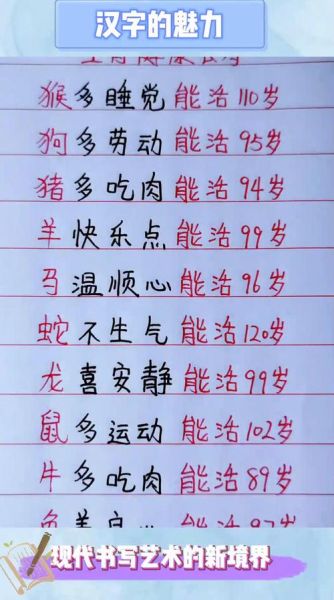 汉字的魅力
猴多睡觉能活110岁
狗多劳动能活95岁
猪多吃肉能活94岁
羊快乐点能活99岁
马温顺心能活96岁
蛇不生气能活120岁
龙喜安静能活99岁
鼠多运动能活102岁
牛多吃肉能活89岁
现代书写艺术的新境界